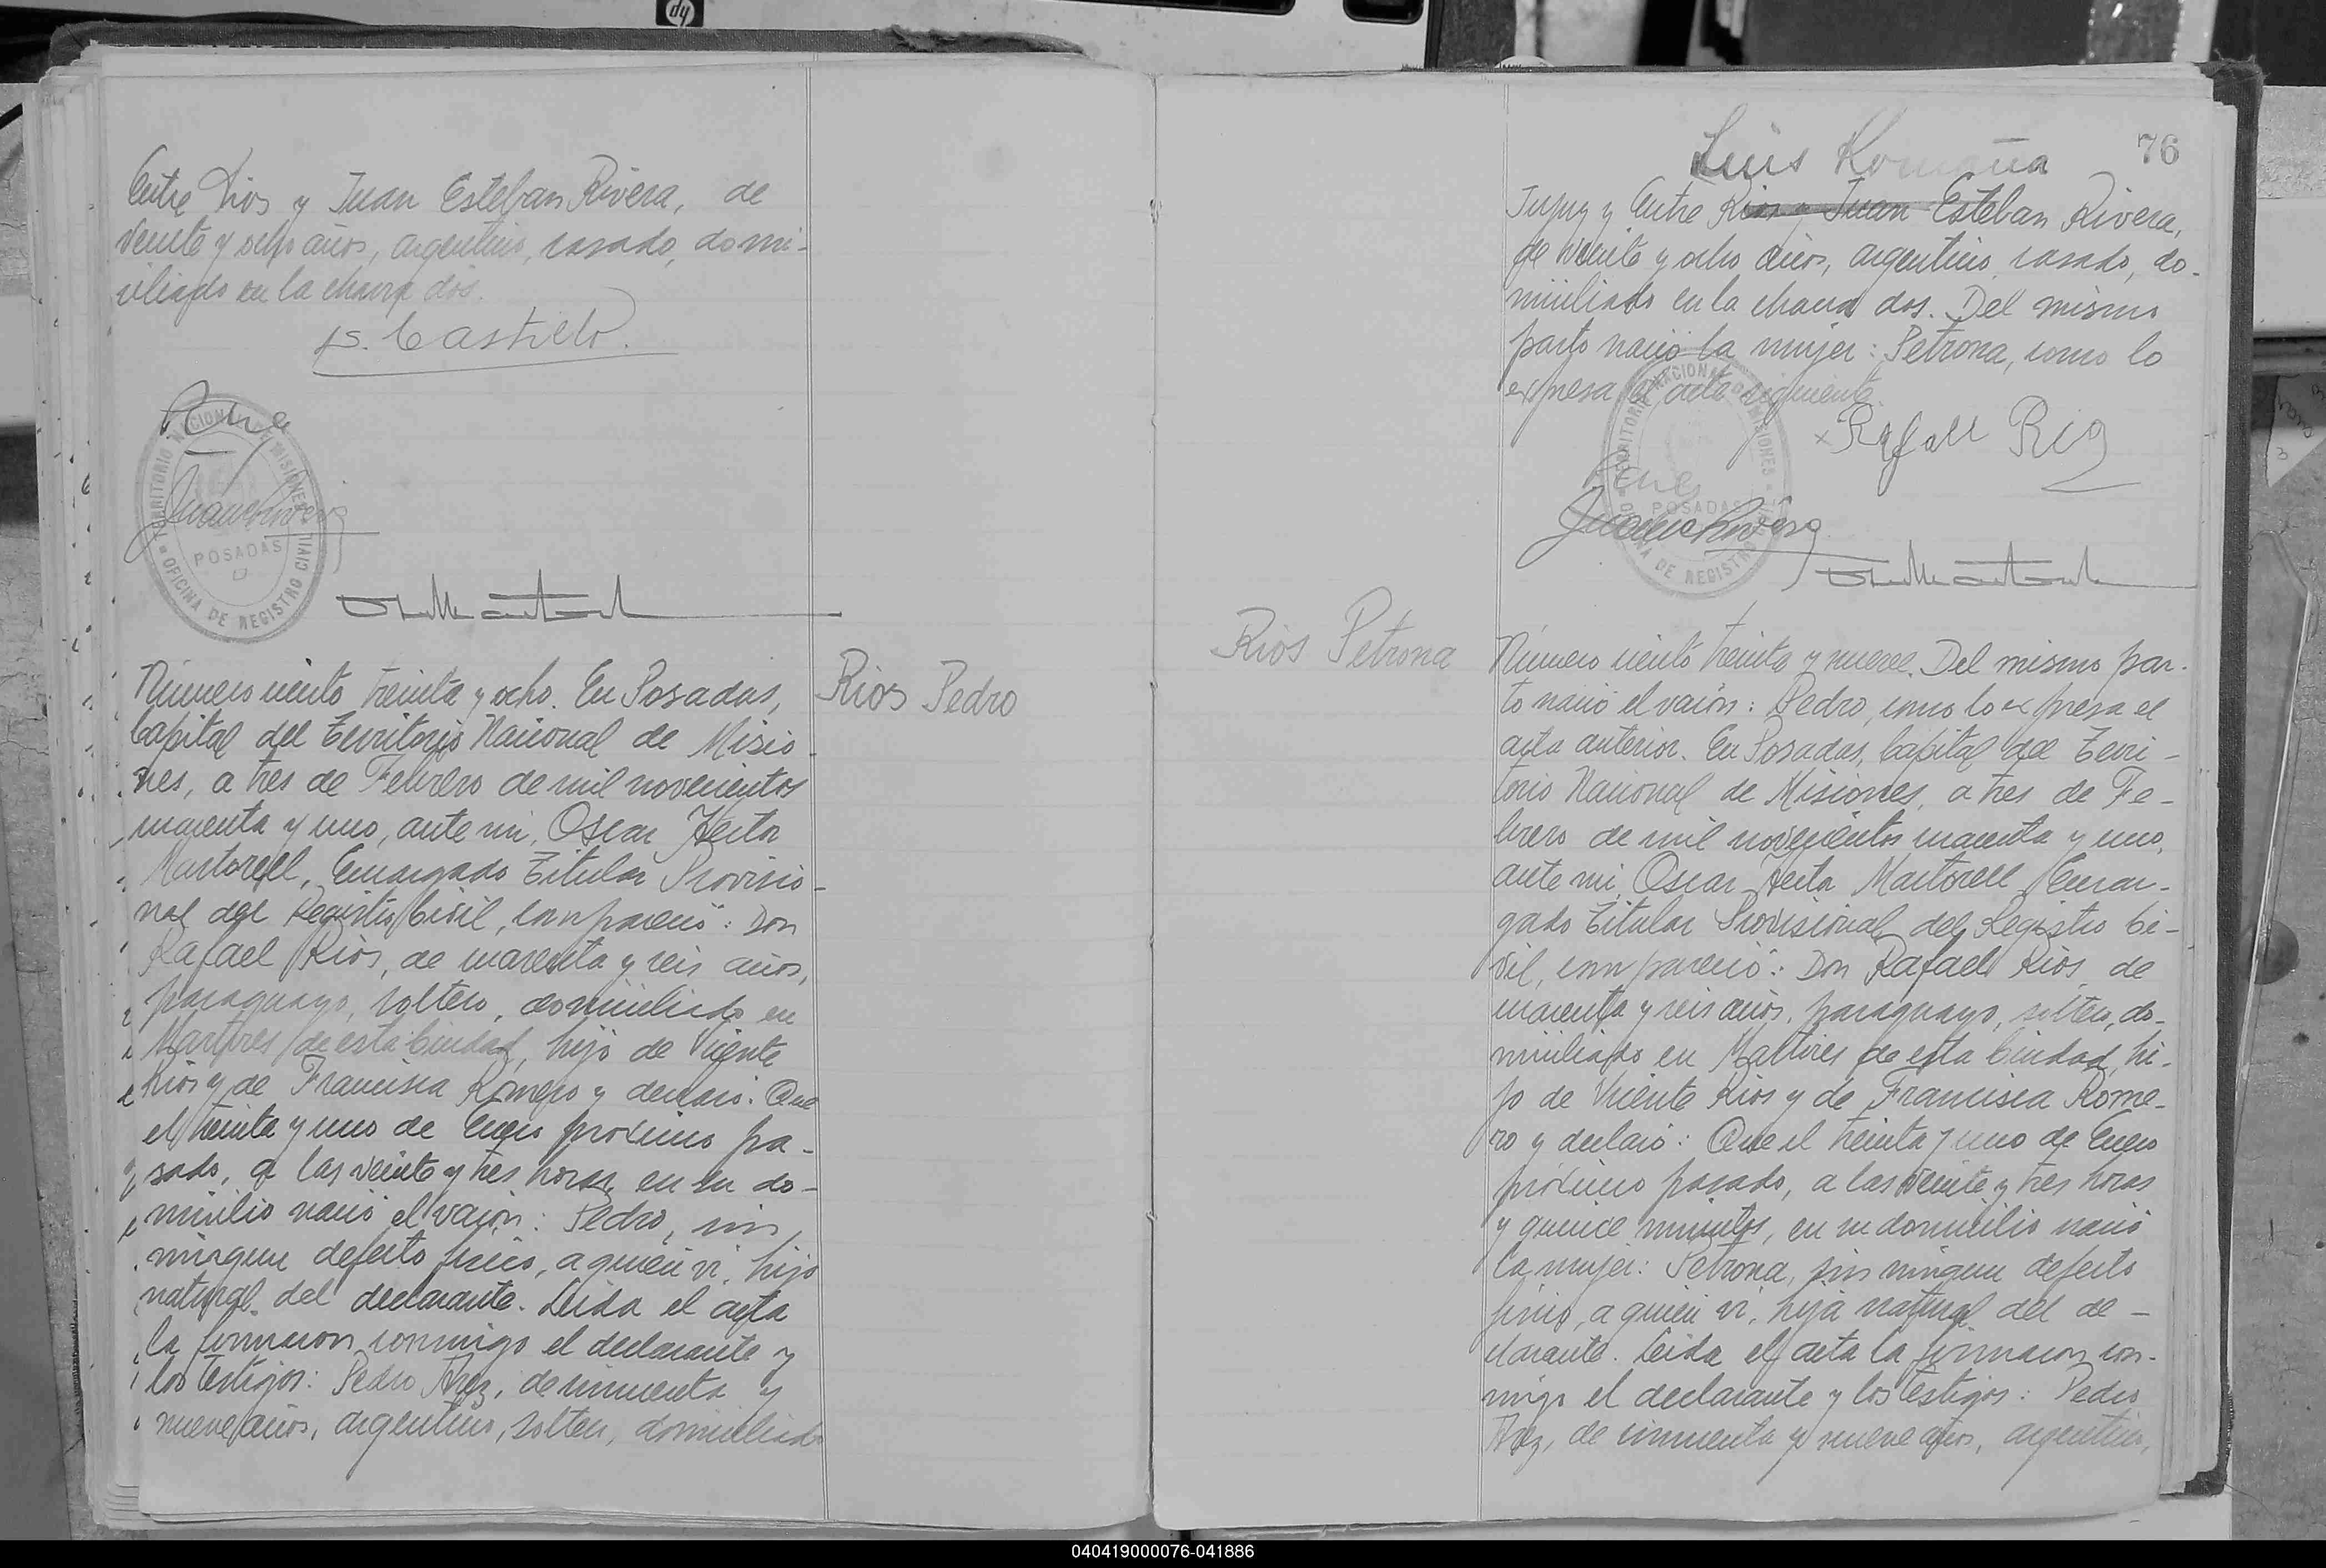 hp
Entre Rios y Juan Esteban Rivera, de
veinte y ocho años, argentino, casado, domi-
ciliado en la chacra dos.
S. Castillo.
TERRITORIO NACIONAL DE MISIONES
POSADAS
OFICINA DE REGISTRO CIVIL
Número ciento treinta y ocho. En Posadas,
Capital del Territorio Nacional de Misio-
nes, a tres de Febrero de mil novecientos
cuarenta y uno, ante mi, Oscar Hector
Martorell, Encargado Titular Provisio-
nal del Registro Civil, compareció: Don
Rafael Rios, de cuarenta y seis años,
paraguayo, soltero, domiciliado en
Martires de esta Ciudad, hijo de Vicente
Rios y de Francisca Romero y declaró: Que
el treinta y uno de Enero próximo pa-
sado, a las veinte y tres horas, en su do-
micilio nació el varón: Pedro, sin
ningun defecto físico, a quien vi, hijo
natural del declarante. Leida el acta
la firmaron conmigo el declarante y
los testigos: Pedro, de cincuenta y
nueve años, argentino, soltero, domiciliado
Rios Pedro
76
Luis Romaña
Jujuy y Entre Rios y Juan Esteban Rivera,
de veinte y ocho años, argentino, casado, do-
miciliado en la chacra dos. Del mismo
parto nació la mujer: Petrona, como lo
expresa el acta siguiente.
x Rafael Rios
TERRITORIO NACIONAL DE MISIONES
POSADAS
OFICINA DE REGISTRO CIVIL
Rios Petrona
Número ciento treinta y nueve. Del mismo par-
to nació el varón: Pedro, como lo expresa el
acta anterior. En Posadas, Capital del Terri-
torio Nacional de Misiones, a tres de Fe-
brero de mil novecientos cuarenta y uno,
ante mi, Oscar Hector Martorell, Encar-
gado Titular Provisional del Registro Ci-
vil, compareció: Don Rafael Rios, de
cuarenta y seis años, paraguayo, soltero, do-
miciliado en Martires de esta Ciudad, hi-
jo de Vicente Rios y de Francisca Rome-
ro y declaró: Que el treinta y uno de Enero
próximo pasado, a las veinte y tres horas
y quince minutos, en su domicilio nació
la mujer: Petrona, sin ningun defecto
físico, a quien vi, hija natural del de-
clarante. Leida el acta la firmaron con-
migo el declarante y los testigos: Pedro
de cincuenta y nueve años, argentino,
040419000076-041886